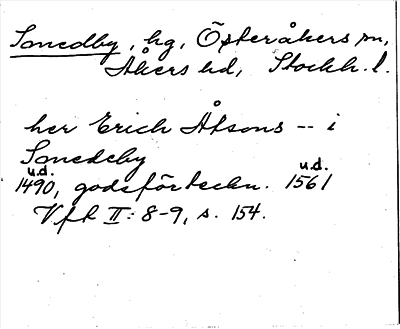 Smedby, hg, Österåkers sn,
Åkers hd, Stockh. l.
her Erich Åksons -- i
Smedeby
u.d. u.d.
1490, godsförteckn. 1561
Vfk II: 8-9, s. 154.